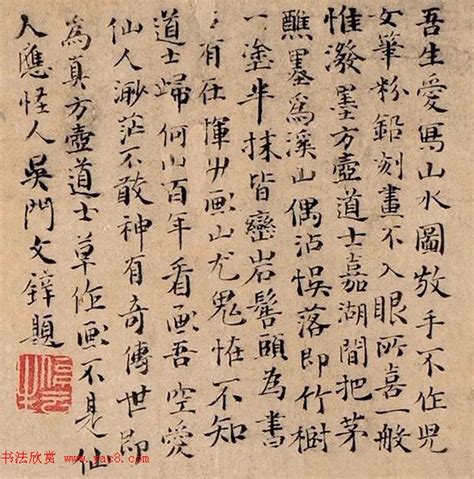 吾生愛寫山水圖放手不作兒
女筆粉鉛刻畫不入眼所喜一般
惟潑墨方壺道士嘉湖間把茅
醮墨為溪山偶沾悞落即竹樹
一塗半抹皆巒岩髻頭為書
有在揮 畫山尤鬼怪不知
道士歸何山百年看畫吾空愛
仙人渺茫不敢神有奇傳世即
為真方壺道士草作畫不是仙
人應怪人吳門文鋅題
书法欣赏 www.yac8.com